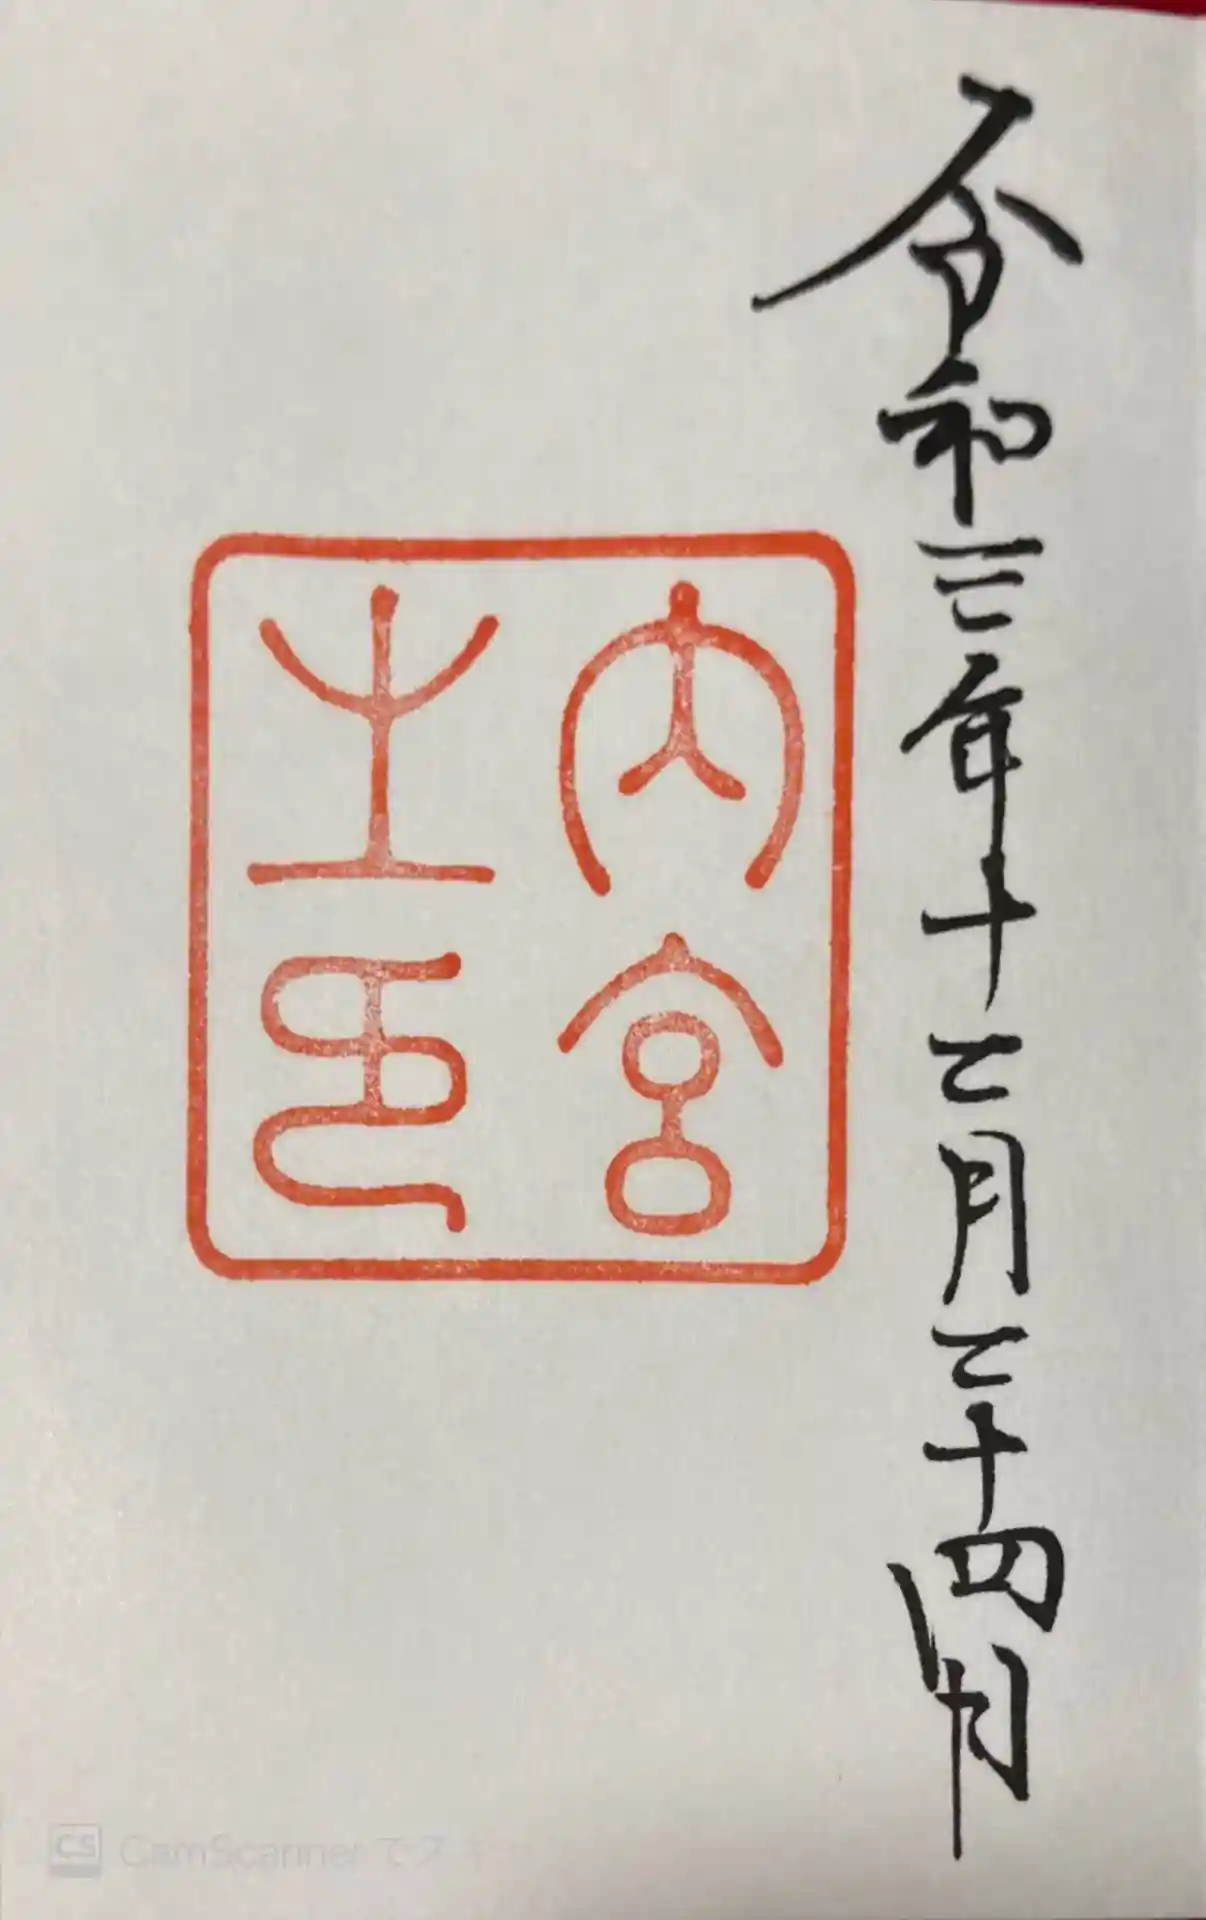 令和三年十二月二十四日
内宮
之印
CS CamScanner でスキ